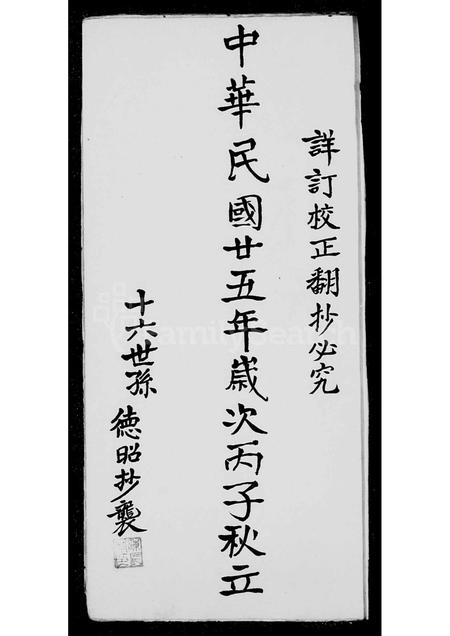 詳訂校正翻抄必究
中華民國廿五年歲次丙子秋立
十六世孫 德昭抄襲
FamilySearch